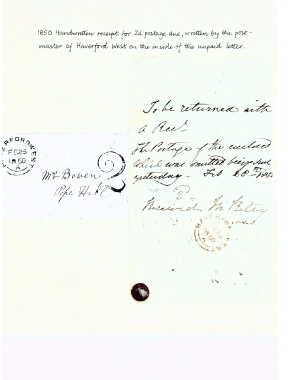 1850 Handwritten receipt for 2d postage due, written by the post-
master of Haverford West on the inside of the unpaid letter.
To be returned with
a Rect.
the Postage of the enclosed
which was omitted being paid
yesterday - Feb
2
Received
HAVERFORDWEST
FE 25
1850
A
Mr Bowen
Pope Hill
2